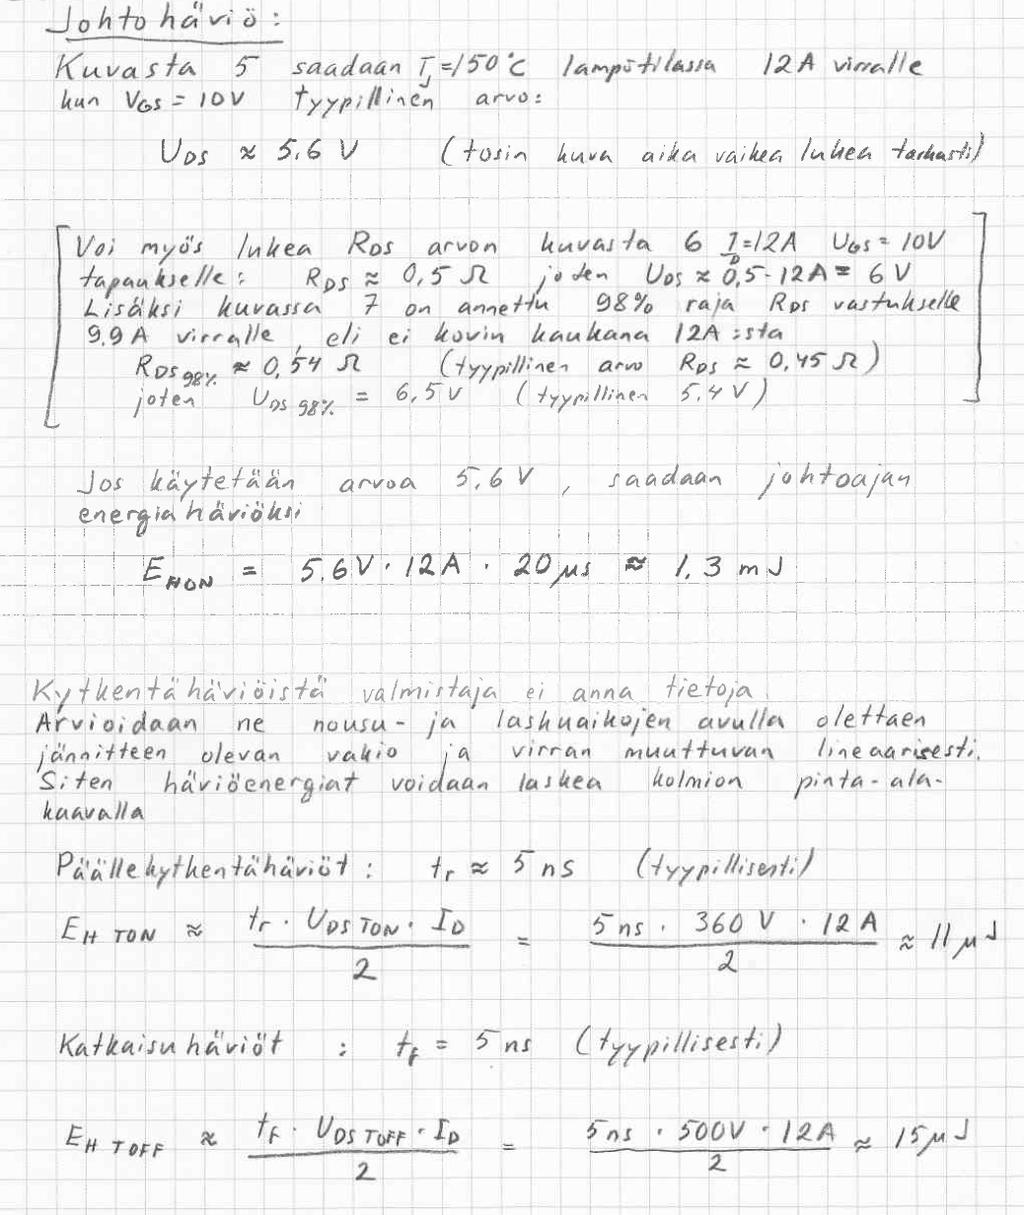 Johtohäviö:
Kuvasta 5 saadaan Tj=150°C lämpötilassa 12A virralle
kun VGS = 10V tyypillinen arvo:
UDS ≈ 5.6 V (tosin kuva aika vaikea lukea tarkasti)
Voi myös lukea RDS arvon kuvasta 6 ID=12A UGS = 10V
tapaukselle: RDS ≈ 0,5 Ω joten UDS ≈ 0,5·12A = 6V
Lisäksi kuvassa 7 on annettu 98% raja RDS vastukselle
9.9A virralle, eli ei kovin kaukana 12A:sta
RDS98% ≈ 0,54 Ω (tyypillinen arvo RDS ≈ 0,45 Ω)
joten UDS98% = 6,5V (tyypillinen 5.4V)
Jos käytetään arvoa 5.6 V, saadaan johtoajan
energiahäviöksi
EHON = 5.6V · 12A · 20μs ≈ 1.3 mJ
Kytkentähäviöistä valmistaja ei anna tietoja.
Arvioidaan ne nousu- ja laskuaikojen avulla olettaen
jännitteen olevan vakio ja virran muuttuvan lineaarisesti.
Siten häviöenergiat voidaan laskea kolmion pinta-ala-
kaavalla
Päällekytkentähäviöt: tr ≈ 5 ns (tyypillisesti)
EH TON ≈ tr · UDS TON · ID / 2 = 5 ns · 360 V · 12 A / 2 ≈ 11 μJ
Katkaisuhäviöt : tf = 5 ns (tyypillisesti)
EH TOFF ≈ tf · UDS TOFF · ID / 2 = 5 ns · 500V · 12A / 2 ≈ 15 μJ